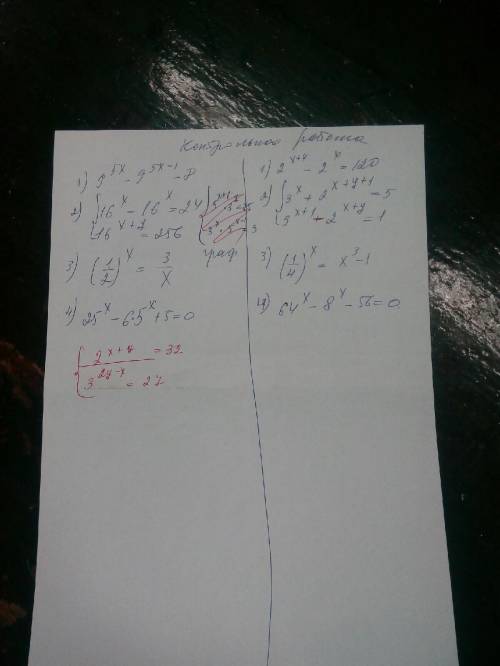 Контрольная работа
1) 9^{5x} - 9^{5x-1} = 8
2) { 16^x - 16^x = 24
16^{x+y} = 256
граф
3) (1/2)^x = 3/x
4) 25^x - 6·5^x + 5 = 0
{ 2^{x+y} = 32
3^{2y-x} = 27
1) 2^{x+4} - 2^x = 120
2) { 3^x + 2^{x+y+1} = 5
3^{x+1} - 2^{x+y} = 1
3) (1/4)^x = x^3 - 1
4) 64^x - 8^x - 56 = 0